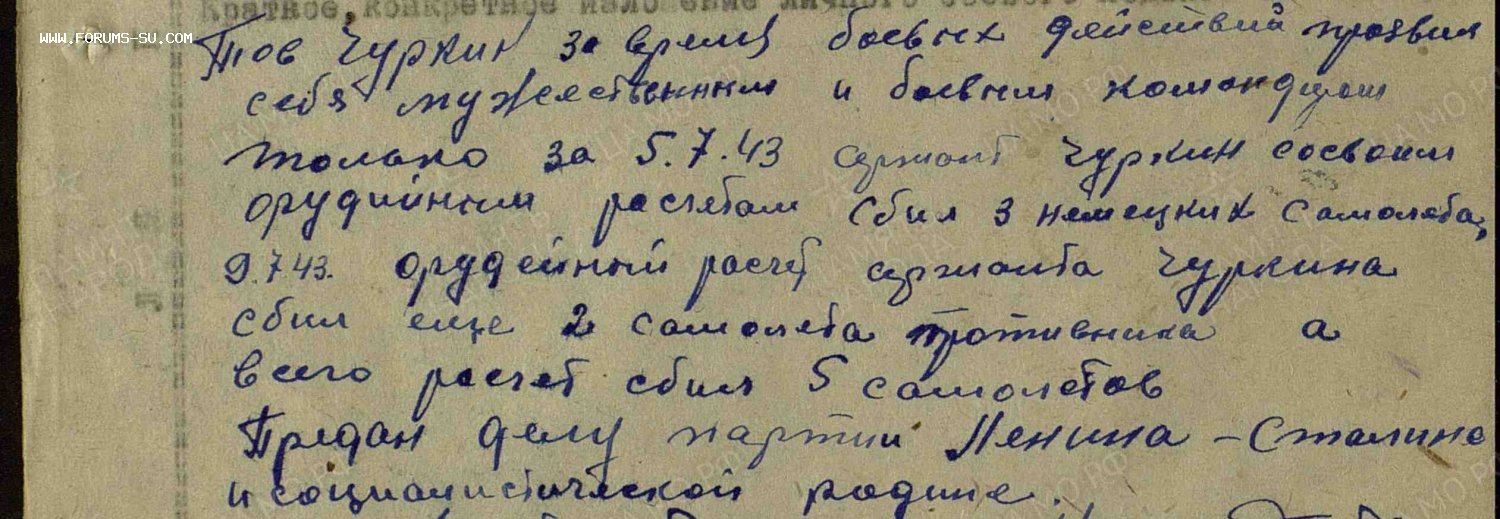 Краткое, конкретное изложение личного боевого
WWW.FORUMS-SU.COM
Тов Чуркин за время боевых действий проявил
себя мужественным и боевым командиром
только за 5.7.43 сержант Чуркин сосвоим
орудийным расчетом сбил 3 немецких самолета,
9.7.43. орудейный расчет сержанта Чуркина
сбил еще 2 самолета противника а
всего расчет сбил 5 самолетов
Предан делу партии Ленина – Сталина
и социалистической родине.